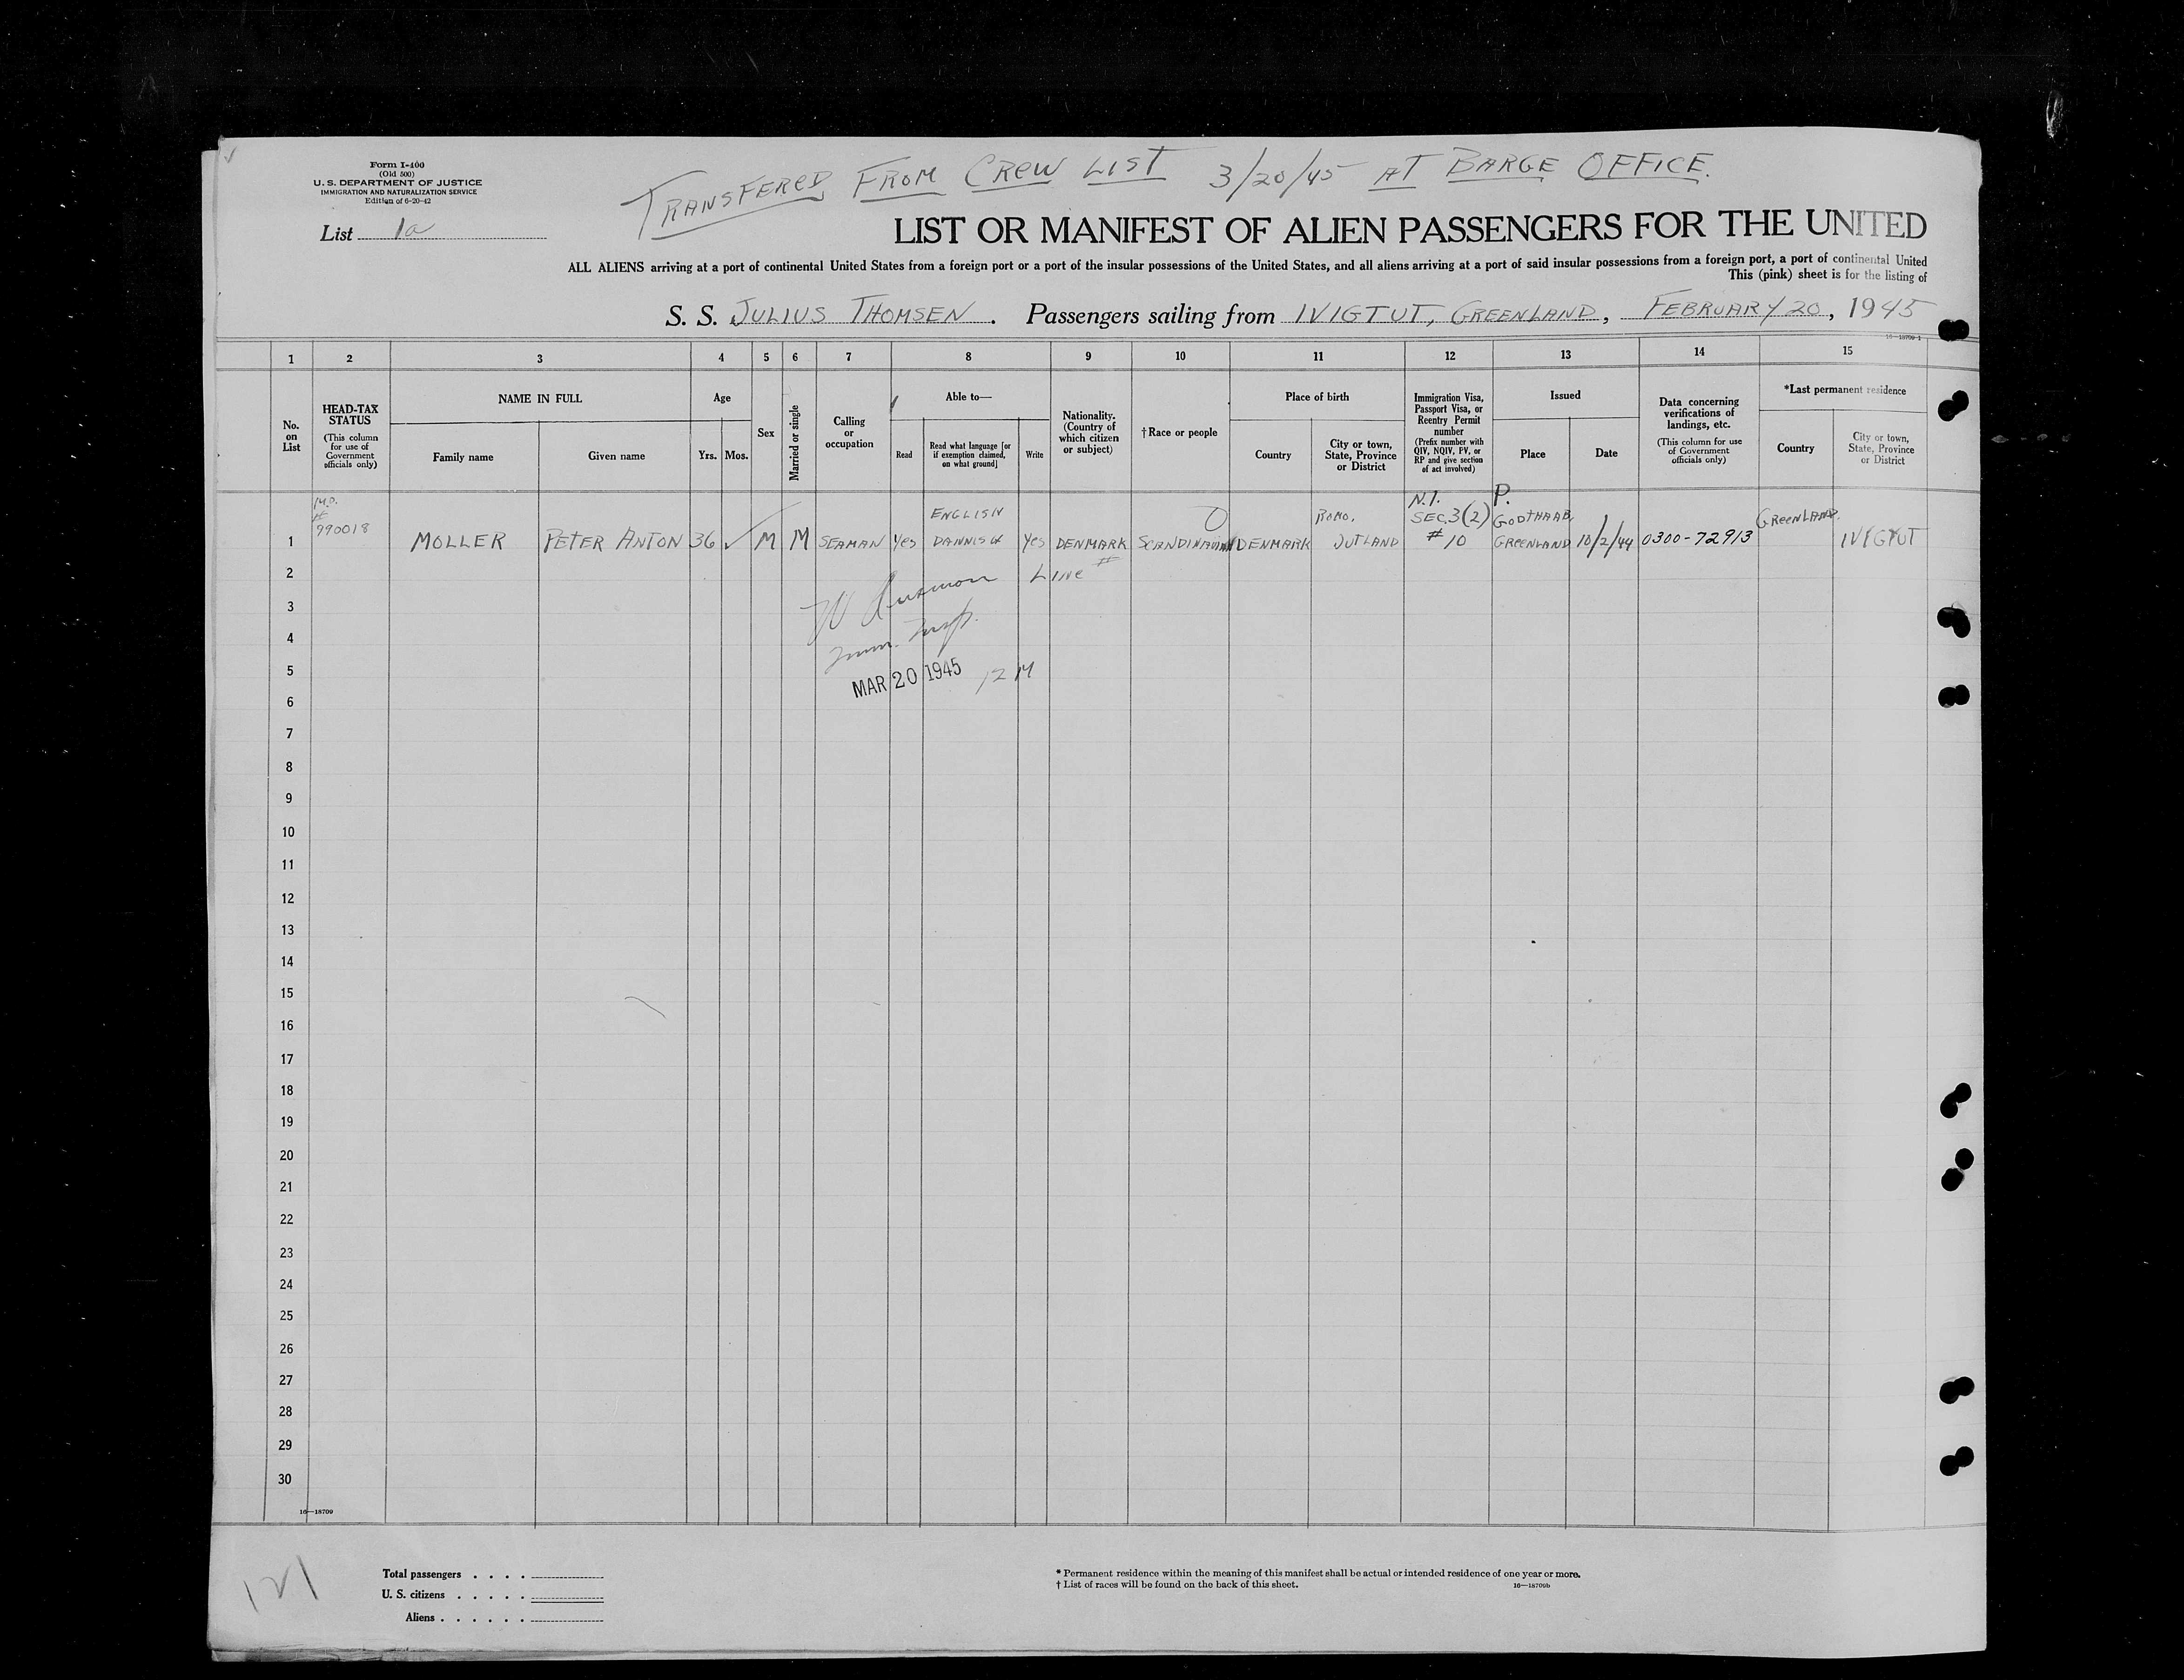 Form I-400
(Old 500)
U. S. DEPARTMENT OF JUSTICE
IMMIGRATION AND NATURALIZATION SERVICE
Edition of 6-20-42
List 1a
TRANSFERED FROM CREW LIST 3/20/45 AT BARGE OFFICE.
LIST OR MANIFEST OF ALIEN PASSENGERS FOR THE UNITED
ALL ALIENS arriving at a port of continental United States from a foreign port or a port of the insular possessions of the United States, and all aliens arriving at a port of said insular possessions from a foreign port, a port of continental United
This (pink) sheet is for the listing of
S. S. JULIUS THOMSEN. Passengers sailing from IVIGTUT, GREENLAND, FEBRUARY 20, 1945
16—18709-1
1 2 3 4 5 6 7 8 9 10 11 12 13 14 15
No. on List
HEAD-TAX STATUS
(This column for use of Government officials only)
NAME IN FULL
Family name Given name
Age
Yrs. Mos.
Sex
Married or single
Calling or occupation
Able to—
Read
Read what language [or if exemption claimed, on what ground]
Write
Nationality. (Country of which citizen or subject)
†Race or people
Place of birth
Country
City or town, State, Province or District
Immigration Visa, Passport Visa, or Reentry Permit number
(Prefix number with QIV, NQIV, PV, or RP and give section of act involved)
Issued
Place Date
Data concerning verifications of landings, etc.
(This column for use of Government officials only)
*Last permanent residence
Country
City or town, State, Province or District
N.I. P.
ENGLISH ROMO, SEC. 3(2) GODTHAAB, GREENLAND.
#
990018
1 MOLLER PETER ANTON 36 ✓ M M SEAMAN Yes DANNISH Yes DENMARK SCANDINAVIAN DENMARK JUTLAND #10 GREENLAND 10/2/44 0300-72913 IVIGTUT
2 Line #
3
4 Imm. Insp.
5
MAR 20 1945 12 M
6
7
8
9
10
11
12
13
14
15
16
17
18
19
20
21
22
23
24
25
26
27
28
29
30
16—18709
121
Total passengers . . . .
U. S. citizens . . . . .
Aliens . . . . . .
* Permanent residence within the meaning of this manifest shall be actual or intended residence of one year or more.
† List of races will be found on the back of this sheet.
16—18709b